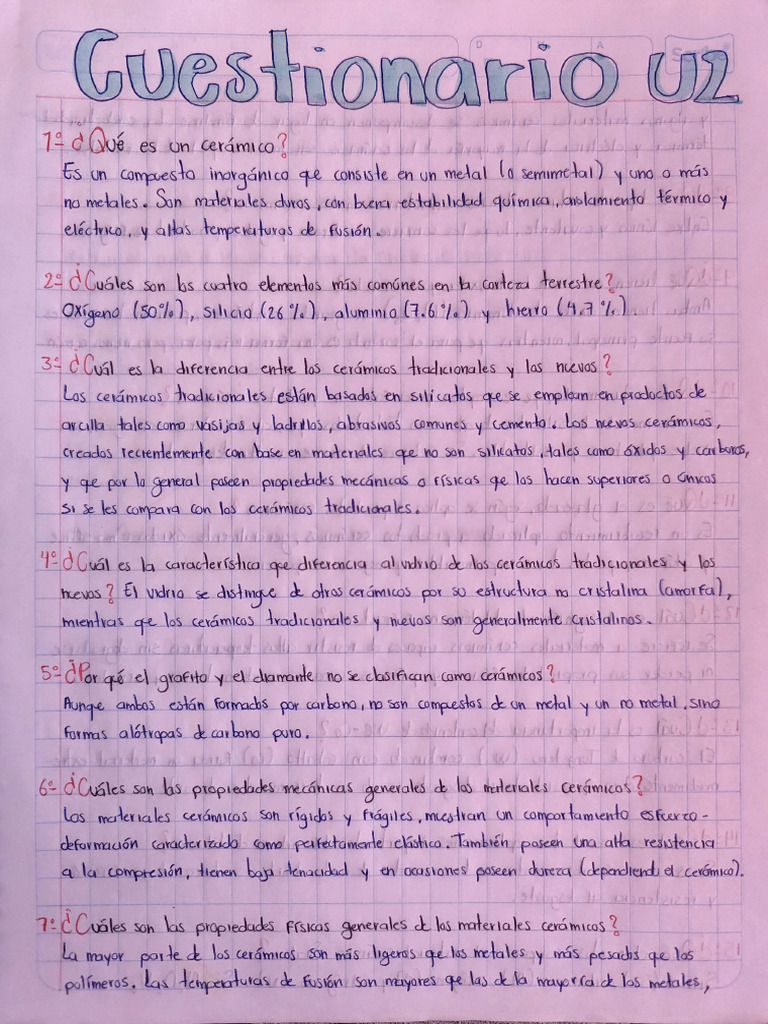 Cuestionario U2
1º ¿Qué es un cerámico?
Es un compuesto inorgánico que consiste en un metal (o semimetal) y uno o más
no metales. Son materiales duros, con buena estabilidad química, aislamiento térmico y
eléctrico, y altas temperaturas de fusión.
2º ¿Cuáles son los cuatro elementos más comúnes en la corteza terrestre?
Oxígeno (50%), silicio (26%), aluminio (7.6%) y hierro (4.7%).
3º ¿Cuál es la diferencia entre los cerámicos tradicionales y los nuevos?
Los cerámicos tradicionales están basados en silicatos que se emplean en productos de
arcilla tales como vasijas y ladrillos, abrasivos comunes y cemento. Los nuevos cerámicos,
creados recientemente con base en materiales que no son silicatos, tales como óxidos y carburos,
y que por lo general poseen propiedades mecánicas o físicas que los hacen superiores o únicos
si se les compara con los cerámicos tradicionales.
4º ¿Cuál es la característica que diferencia al vidrio de los cerámicos tradicionales y los
nuevos? El vidrio se distingue de otros cerámicos por su estructura no cristalina (amorfa),
mientras que los cerámicos tradicionales y nuevos son generalmente cristalinos.
5º ¿Por qué el grafito y el diamante no se clasifican como cerámicos?
Aunque ambos están formados por carbono, no son compuestos de un metal y un no metal, sino
formas alótropas de carbono puro.
6º ¿Cuáles son las propiedades mecánicas generales de los materiales cerámicos?
Los materiales cerámicos son rígidos y frágiles, muestran un comportamiento esfuerzo-
deformación caracterizado como perfectamente elástico. También poseen una alta resistencia
a la compresión, tienen baja tenacidad y en ocasiones poseen dureza (dependiendo el cerámico).
7º ¿Cuáles son las propiedades físicas generales de los materiales cerámicos?
La mayor parte de los cerámicos son más ligeros que los metales y más pesados que los
polímeros. Las temperaturas de fusión son mayores que las de la mayoría de los metales,